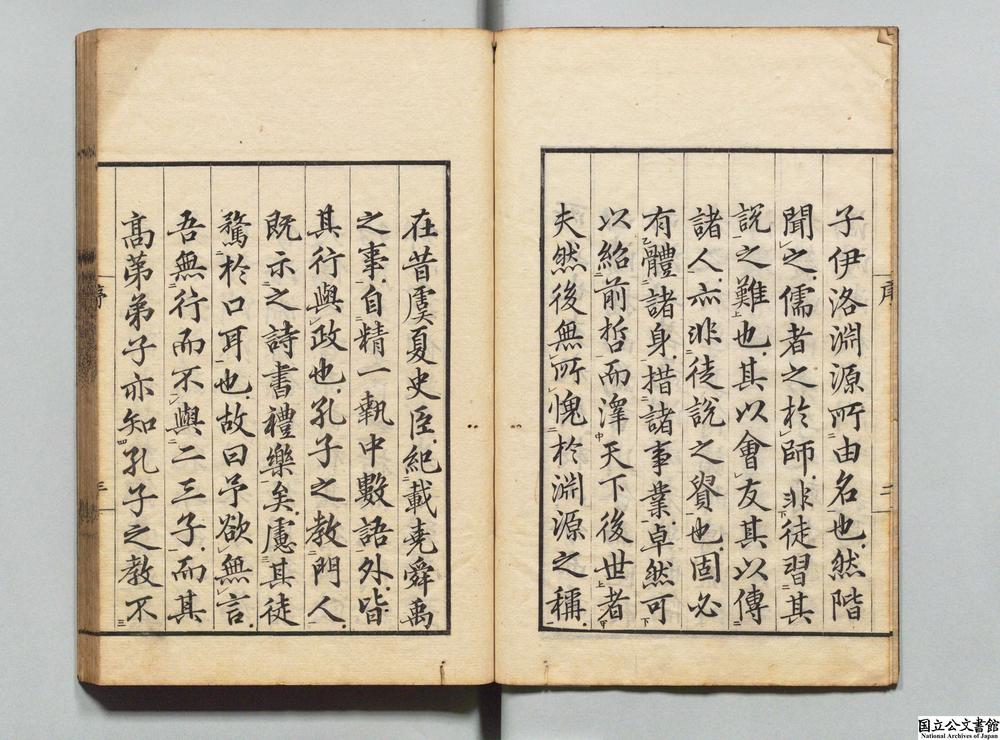 子伊洛淵源所由名也然階
聞之儒者之於師非徒習其
説之難也其以會友其以傳
諸人亦非徒説之貲也固必
有體諸身措諸事業卓然可
以紹前哲而澤天下後世者
夫然後無所愧於淵源之稱
序
二
在昔虞夏史臣紀載堯舜禹
之事自精一執中數語外皆
其行與政也孔子之教門人
既示之詩書禮樂矣慮其徒
騖於口耳也故曰予欲無言
吾無行而不與二三子而其
髙苐弟子亦知孔子之教不
序
三
国立公文書館
National Archives of Japan